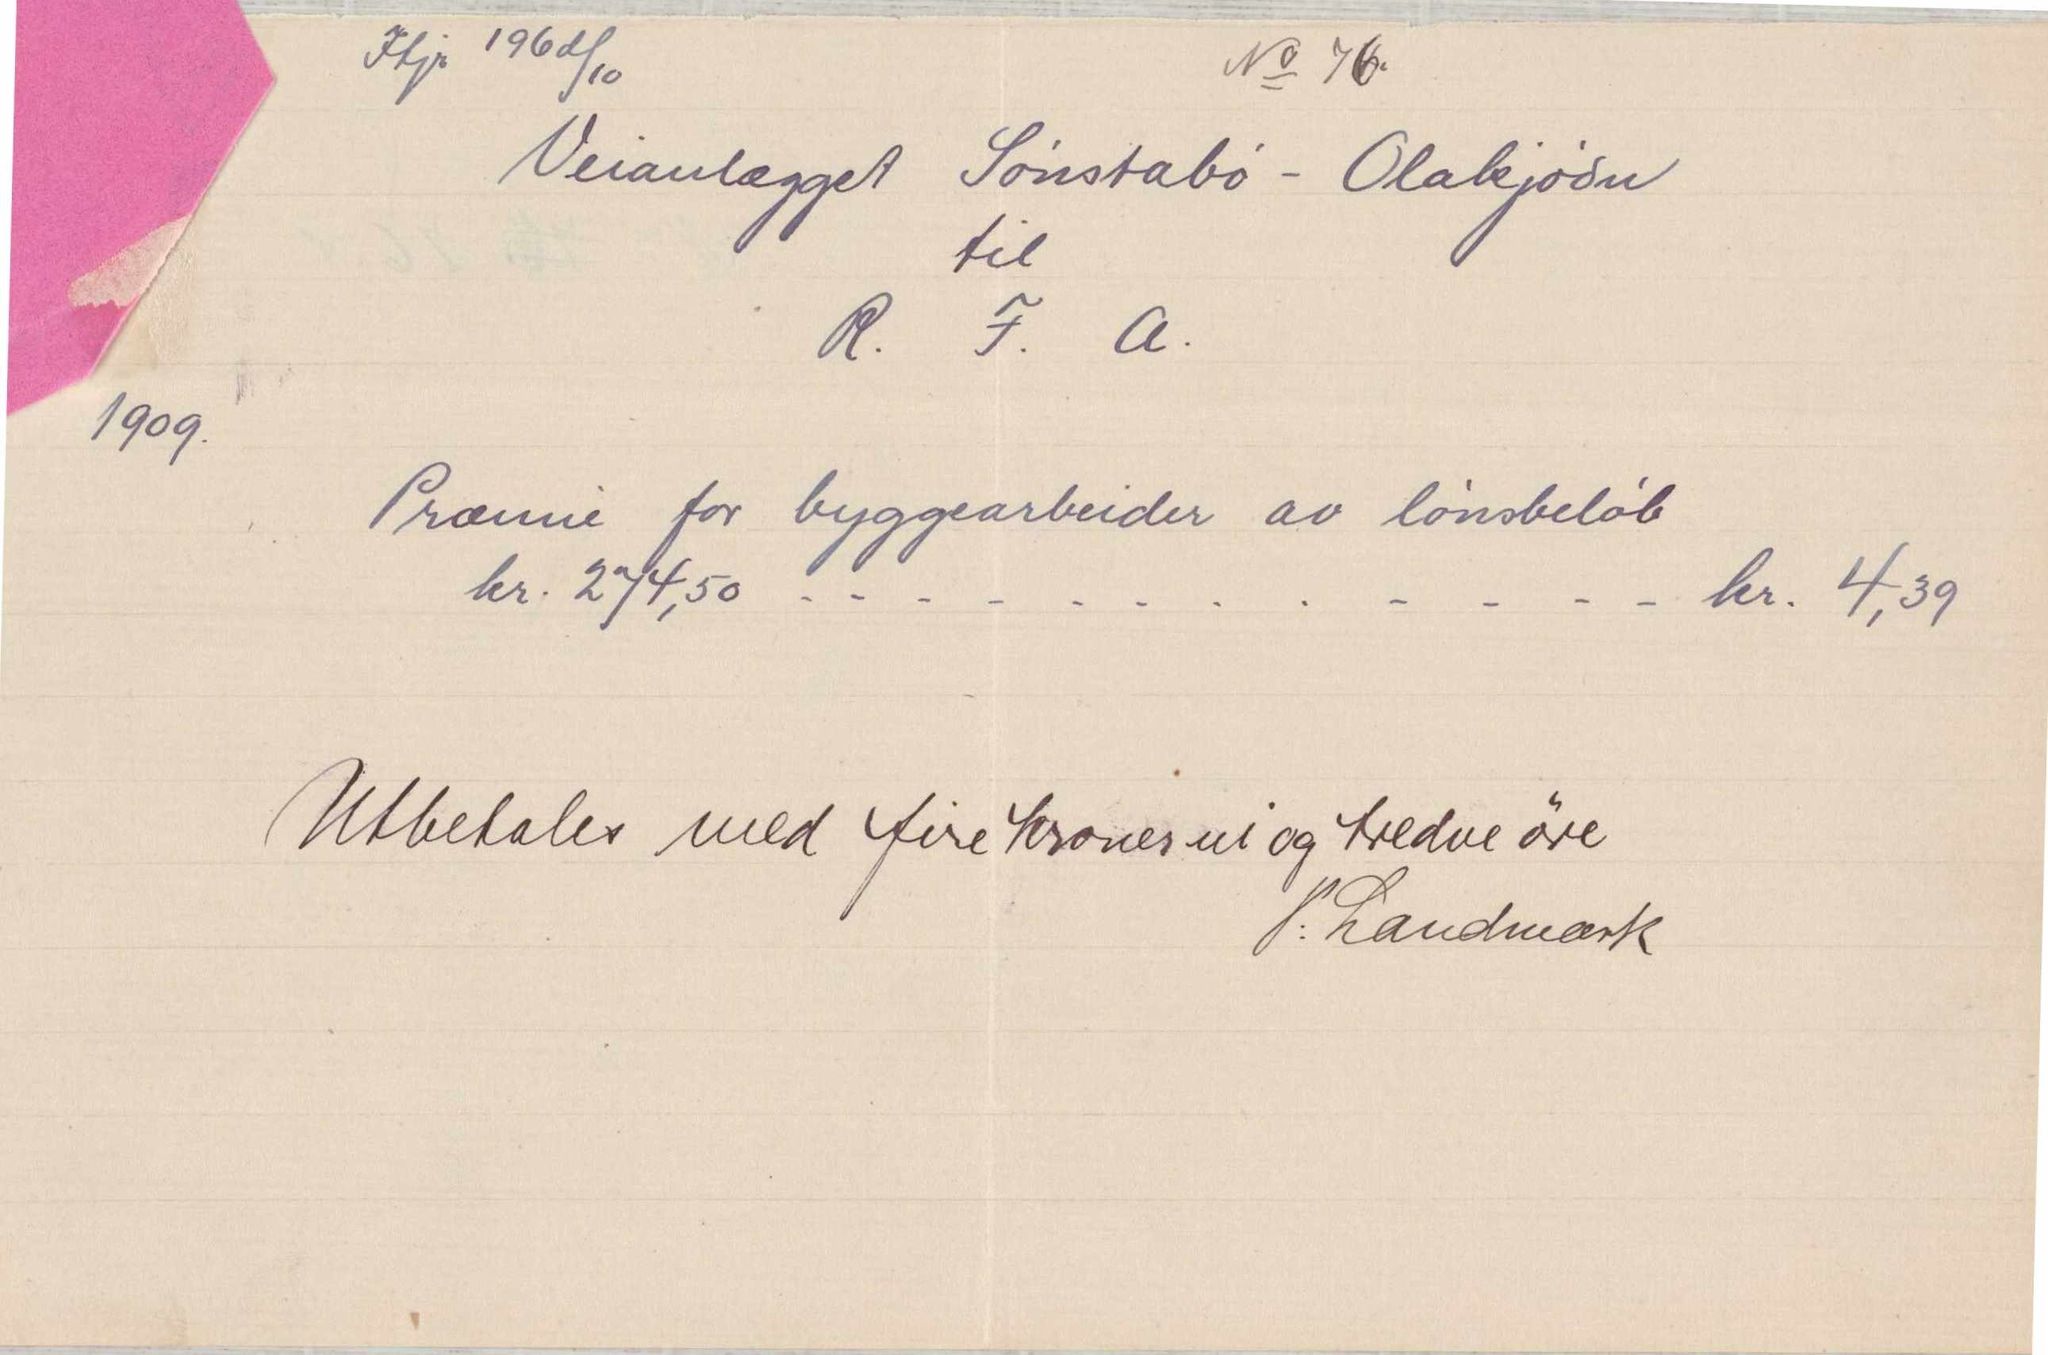 196d/10 No 76.
Veianlægget Sónstabó - Olakjóðn
til
R. F. A.
1909.
Præmie for byggearbeider av lónsbelób
kr. 274,50 - - - - - - - - - - - - kr. 4,39
Utbetales med fire kroner ni og tredve öre
P. Landmark